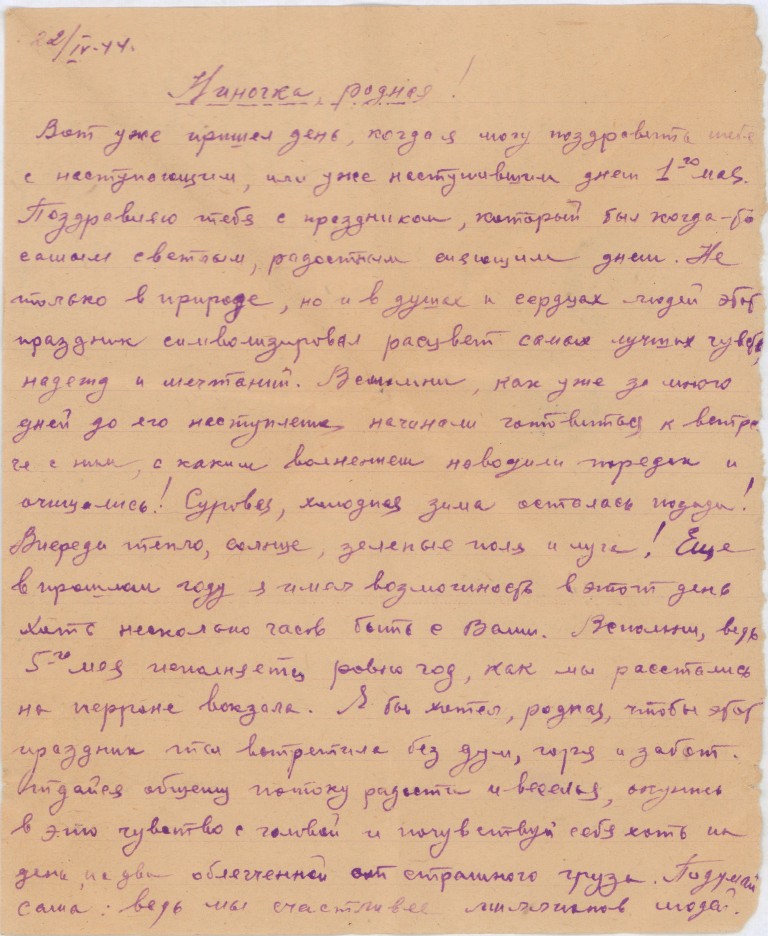 22/IV-44.
Ниночка, родная!
Вот уже пришел день, когда я могу поздравить тебя
с наступающим, или уже наступившим днем 1-го мая.
Поздравляю тебя с праздником, который был когда-то
самым светлым, радостным сияющим днем. Не
только в природе, но и в душах и сердцах людей этот
праздник символизировал расцвет самых лучших чувств,
надежд и мечтаний. Вспомни, как уже за много
дней до его наступления начинали готовиться к встре
че с ним, с каким волнением наводили порядок и
очищались! Суровая, холодная зима осталась позади!
Впереди тепло, солнце, зеленые поля и луга! Еще
в прошлом году я имел возможность в этот день
хоть несколько часов быть с Вами. Вспомни, ведь
5-го мая исполняется ровно год, как мы расстались
на перроне вокзала. Я бы хотел, родная, чтобы этот
праздник ты встретила без дум, горя и забот.
Отдайся общему потоку радости и веселья, окунись
в это чувство с головой и почувствуй себя хоть на
день, на два облегченной от страшного груза. Подумай
сама: ведь мы счастливее миллионов людей.